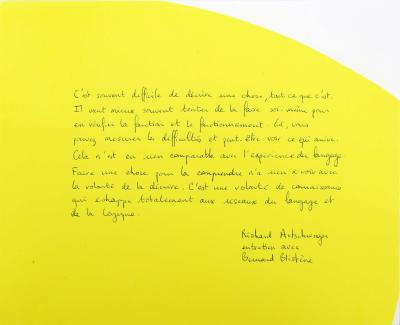 C'est souvent difficile de décrire une chose, tout ce que c'est.
Il vaut mieux souvent tenter de la faire soi-même pour
en vérifier la fonction et le fonctionnement. Là, vous
pouvez mesurer les difficultés et peut-être voir ce qui arrive.
Cela n'est en rien comparable avec l'expérience du langage.
Faire une chose pour la comprendre n'a rien à voir avec
la volonté de la décrire. C'est une volonté de connaissance
qui échappe totalement aux réseaux du langage et
de la logique.
Richard Artschwager
entretien avec
Bernard Blistène